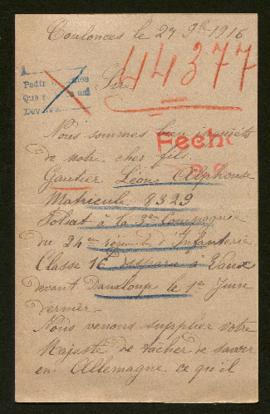 Coutances le 27 9bre 1916
44377
Sire
Nous sommes bien inquiets
Fech
de notre cher fils.
Gautier Léon Alphonse
Matricule 8329
Soldat à la 3me Compagnie
du 24me régiment d'Infanterie
Classe 16 disparu à Vaux
devant Damloup le 1er Juin
dernier.
Nous venons supplier votre
Majesté de tacher de savoir
en Allemagne ce qu'il